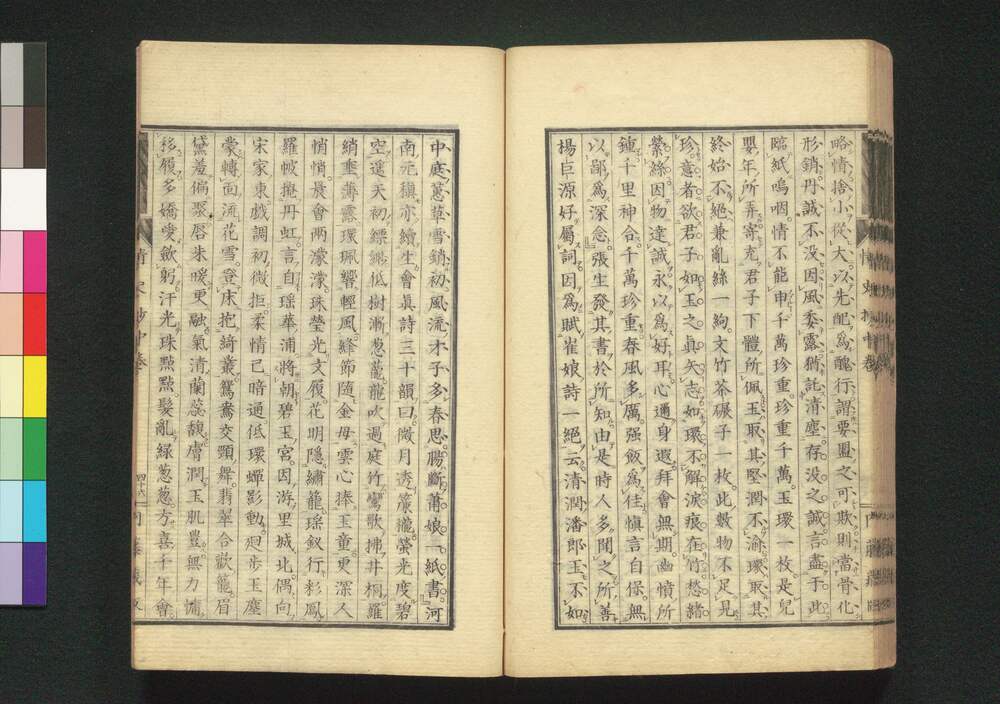 略情捨小從大以先配爲醜行謂要盟之可欺則當骨化
形銷丹誠不没因風委露猶託清塵存沒之誠言盡于此
臨紙嗚咽情不能申千萬珍重珍重千萬玉環一枚是兒
嬰年所弄寄充君子下體所佩玉取其堅潤不渝環取其
終始不絕兼亂絲一絇文竹茶碾子一枚此數物不足見
珍意者欲君子如玉之眞矢志如環不解淚痕在竹愁緒
縈絲因物達誠永以爲好耳心邇身遐拜會無期幽憤所
鍾千里神合千萬珍重春風多厲强飯爲佳愼言自保無
以鄙爲深念張生發其書於所知由是時人多聞之所善
楊巨源好屬詞因爲賦崔娘詩一絕云清潤潘郎玉不如
中庭蕙草雪銷初風流才子多春思腸斷蕭娘一紙書河
南元稹亦續生會眞詩三十韻曰微月透簾櫳螢光度碧
空遥天初縹緲低樹漸葱蘢龍吹過庭竹鸞歌拂井桐羅
綃垂薄霧環珮響輕風絳節隨金母雲心捧玉童更深人
悄悄晨會雨濛濛珠瑩光文履花明隱繡龍瑤釵行彩鳳
羅帔掩丹虹言自瑤華浦將朝碧玉宮因游里城北偶向
宋家東戲調初微拒柔情已暗通低環蟬影動廻步玉塵
蒙轉面流花雪登床抱綺叢鴛鴦交頸舞翡翠合歡籠眉
黛羞偏聚唇朱暖更融氣清蘭蕊馥膚潤玉肌豊無力慵
移履多嬌愛歛躬汗光珠點點髮亂綠葱葱方喜千年會
情史抄中卷
四十六